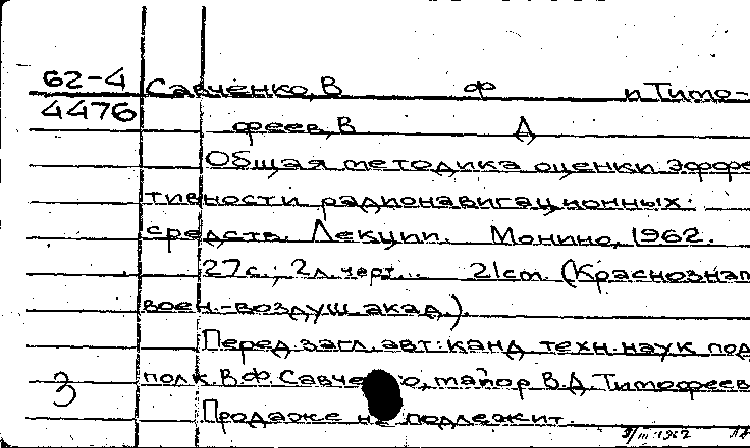 62-4 Савченко, В Ф и Тимо-
4476 феев, В Д
Общая методика оценки эффе
тивности радионавигационных
средств. Лекции. Монино, 1962.
27 с.; 2 л. черт. 21 cm. (Краснознам
воен.-воздуш. акад.).
Перед загл. авт: канд техн. наук под
3 полк. В.Ф. Савче о, майор В.Д. Тимофеев
Продаже не подлежит.
9/III-1962